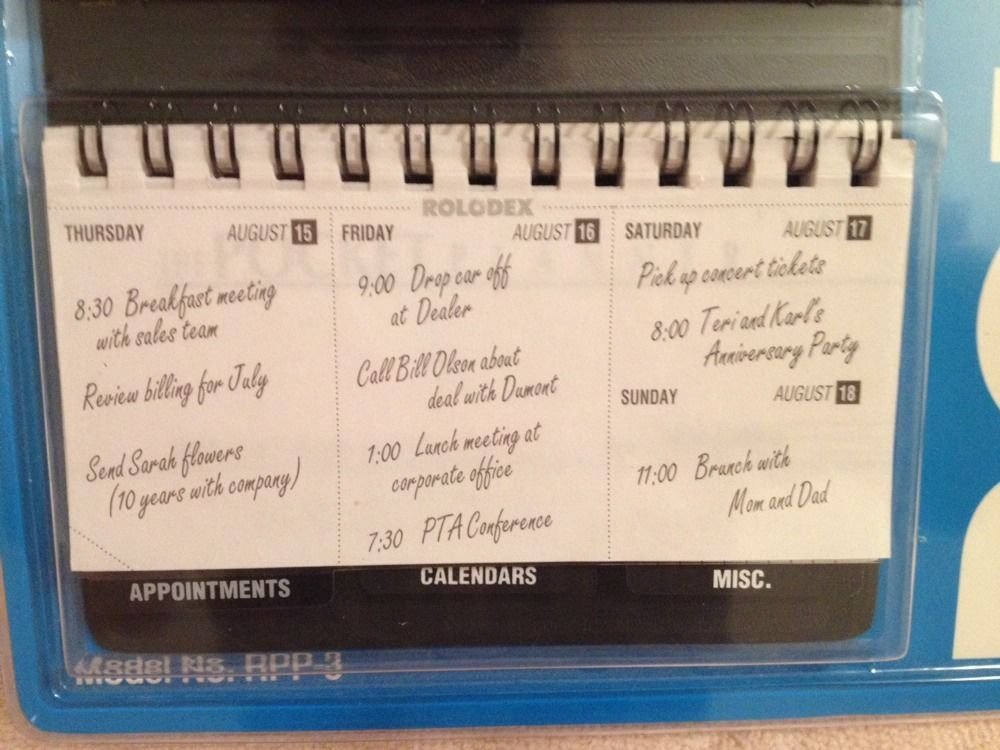 ROLODEX
THURSDAY AUGUST 15
8:30 Breakfast meeting
with sales team
Review billing for July
Send Sarah flowers
(10 years with company)
FRIDAY AUGUST 16
9:00 Drop car off
at Dealer
Call Bill Olson about
deal with Dumont
1:00 Lunch meeting at
corporate office
7:30 PTA Conference
SATURDAY AUGUST 17
Pick up concert tickets
8:00 Teri and Karl's
Anniversary Party
SUNDAY AUGUST 18
11:00 Brunch with
Mom and Dad
APPOINTMENTS
CALENDARS
MISC.
Model No. RPP-3